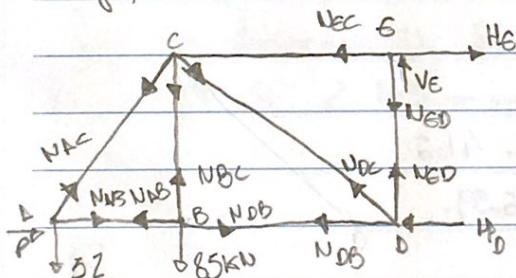 NEC E HE
C
VE
NED
NAC NBC NDC NED
NAB NAB B NDB
A NDB D HD
52 85KN